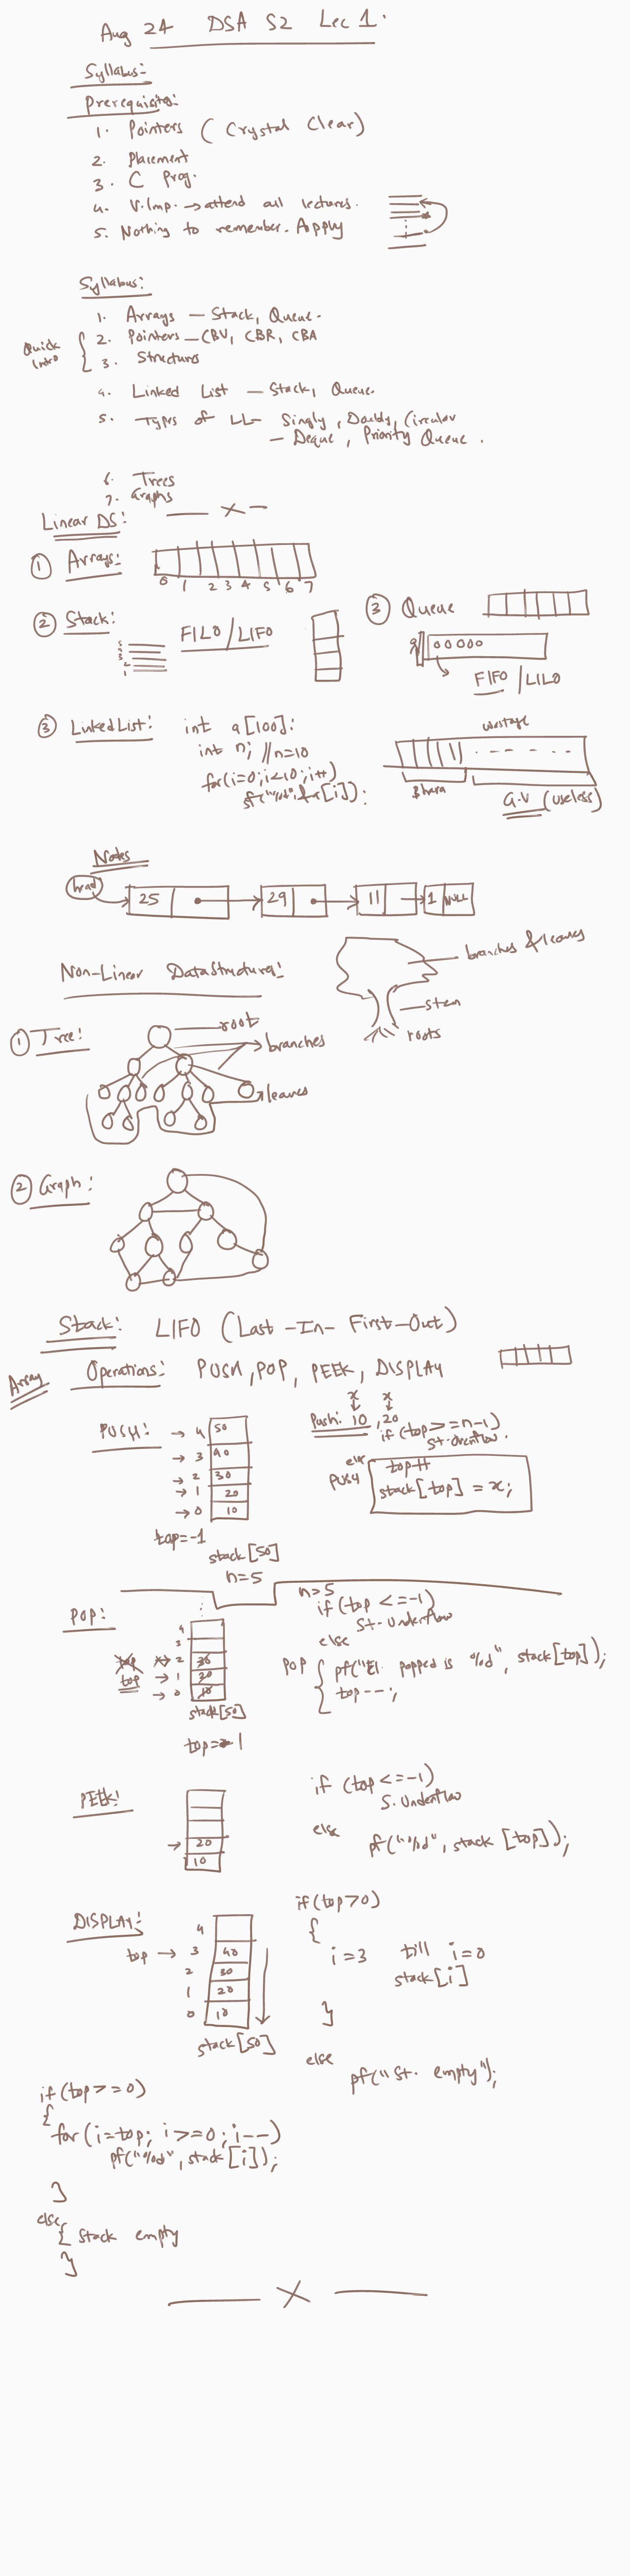 Aug 24 DSA S2 Lec 1.
Syllabus:
Prerequisites:
1. Pointers (Crystal Clear)
2. Placement
3. C Prog.
4. V.Imp. → attend all lectures.
5. Nothing to remember. Apply
Syllabus:
1. Arrays — Stack, Queue.
Quick Intro
2. Pointers — CBV, CBR, CBA
3. Structures
4. Linked List — Stack, Queue.
5. Types of LL — Singly, Doubly, Circular
— Deque, Priority Queue.
6. Trees
7. Graphs
— x —
Linear DS:
① Arrays:
0 1 2 3 4 5 6 7
② Stack:
5
4
3
2
1
FILO / LIFO
③ Queue
00000
FIFO / LILO
③ Linked List:
int a[100]:
int n; //n=10
for(i=0; i<10; i++)
sf("%d", &a[i]);
wastage
Bhara
G.V (useless)
Notes
head
25
29
11
1 NULL
Non-Linear DataStructure:
branches & leaves
stem
roots
① Tree:
root
branches
leaves
② Graph:
Stack: LIFO (Last-In-First-Out)
Array
Operations: PUSH, POP, PEEK, DISPLAY
PUSH:
→ 4 50
→ 3 40
→ 2 30
→ 1 20
→ 0 10
top=-1
stack[50]
n=5
x x
Push: 10, 20
if (top >= n-1)
St-Overflow.
else
PUSH
top++
stack[top] = x;
POP:
4
3
top → 2 30
top → 1 20
→ 0 10
stack[50]
n=5
if (top <= -1)
St-Underflow
else
POP
{ pf("El. popped is %d", stack[top]);
top--;
PEEK:
→ 20
10
if (top <= -1)
S. Underflow
else
pf("%d", stack[top]);
DISPLAY:
4
top → 3 40
2 30
1 20
0 10
stack[50]
if(top>0)
{
i=3 till i=0
stack[i]
}
else
pf("St. empty");
if(top>=0)
{
for(i=top; i>=0; i--)
pf("%d", stack[i]);
}
else
{ stack empty
}
— x —